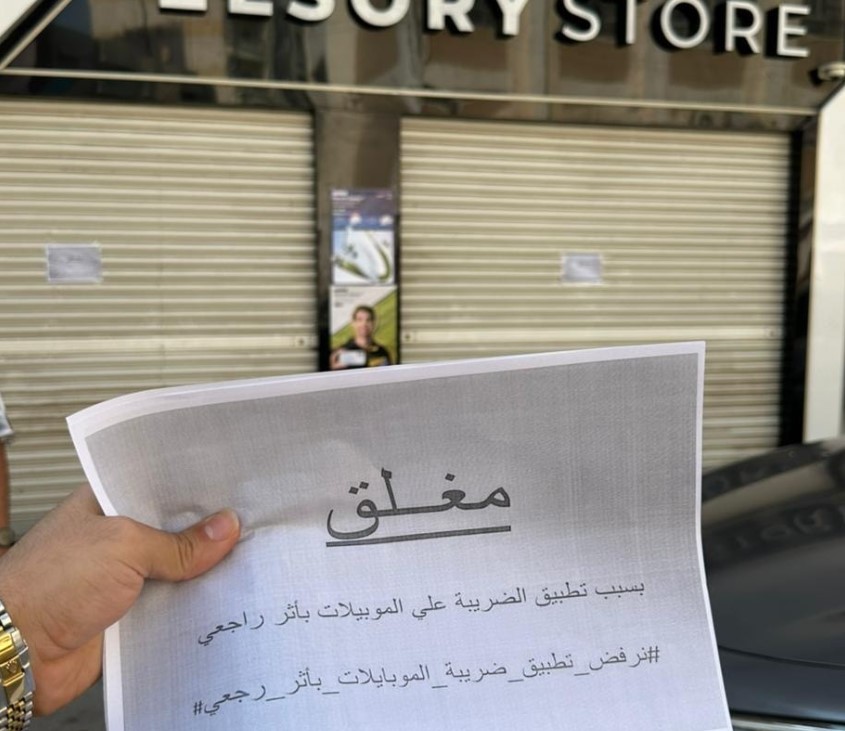 STORE
مغلق
بسبب تطبيق الضريبة علي الموبيلات بأثر راجعي
#نرفض_تطبيق_ضريبة_الموبايلات_بأثر_رجعي#